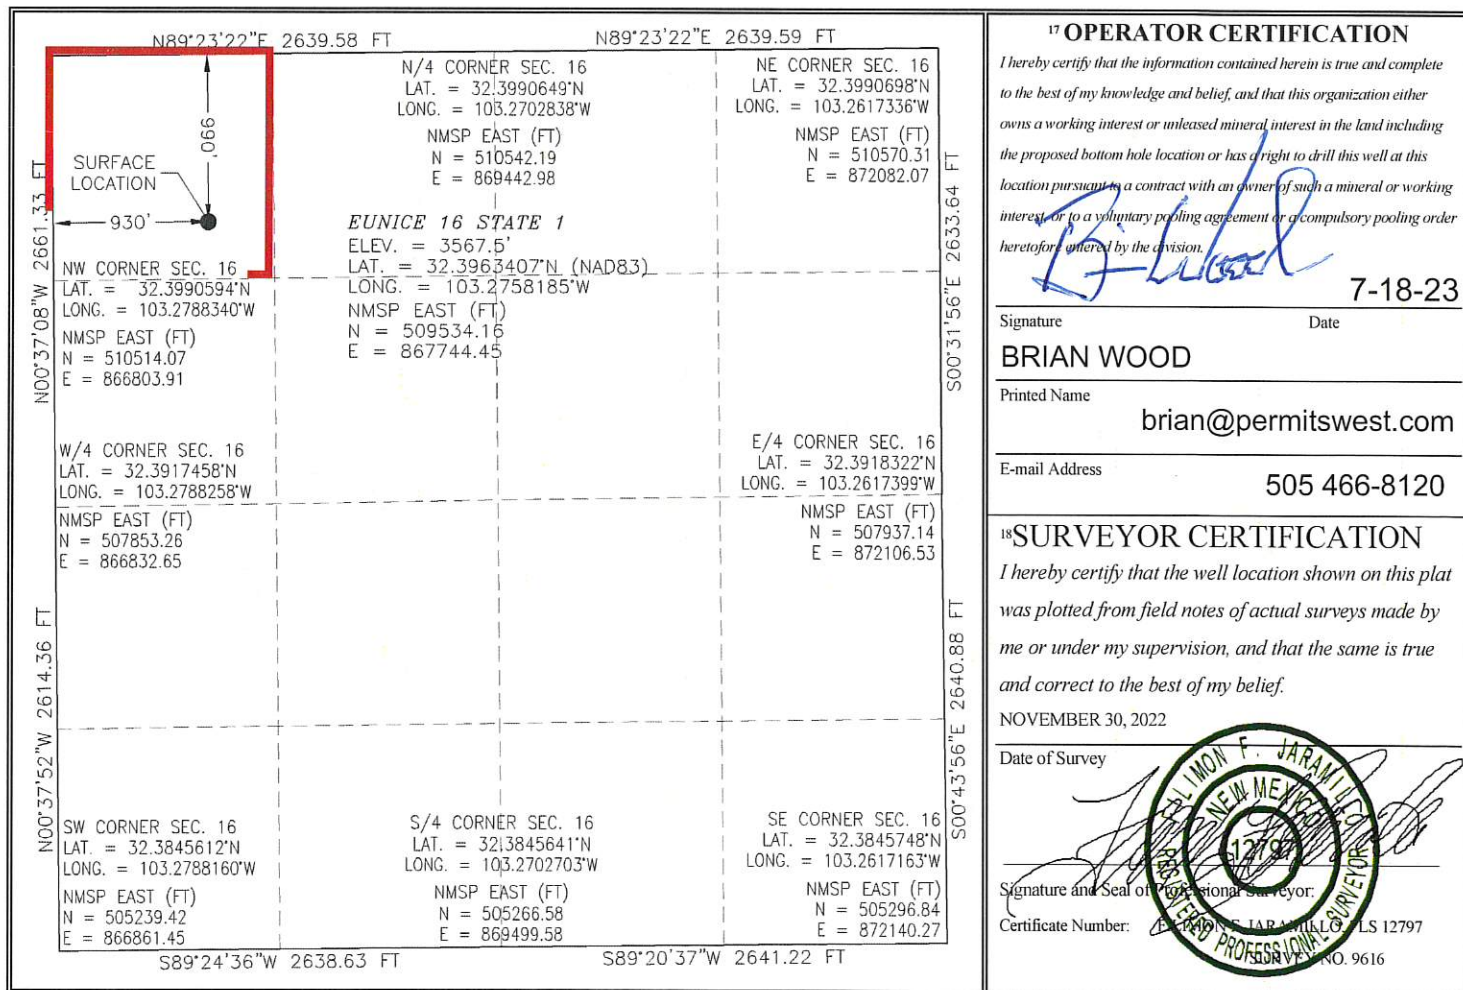 N89°23'22"E 2639.58 FT
N89°23'22"E 2639.59 FT
N/4 CORNER SEC. 16
LAT. = 32.3990649°N
LONG. = 103.2702838°W
NMSP EAST (FT)
N = 510542.19
E = 869442.98
NE CORNER SEC. 16
LAT. = 32.3990698°N
LONG. = 103.2617336°W
NMSP EAST (FT)
N = 510570.31
E = 872082.07
990'
SURFACE
LOCATION
930'
N00°37'08"W 2661.33 FT
S00°31'56"E 2633.64 FT
EUNICE 16 STATE 1
ELEV. = 3567.5'
LAT. = 32.3963407°N (NAD83)
LONG. = 103.2758185°W
NMSP EAST (FT)
N = 509534.16
E = 867744.45
NW CORNER SEC. 16
LAT. = 32.3990594°N
LONG. = 103.2788340°W
NMSP EAST (FT)
N = 510514.07
E = 866803.91
W/4 CORNER SEC. 16
LAT. = 32.3917458°N
LONG. = 103.2788258°W
NMSP EAST (FT)
N = 507853.26
E = 866832.65
E/4 CORNER SEC. 16
LAT. = 32.3918322°N
LONG. = 103.2617399°W
NMSP EAST (FT)
N = 507937.14
E = 872106.53
N00°37'52"W 2614.36 FT
S00°43'56"E 2640.88 FT
SW CORNER SEC. 16
LAT. = 32.3845612°N
LONG. = 103.2788160°W
NMSP EAST (FT)
N = 505239.42
E = 866861.45
S/4 CORNER SEC. 16
LAT. = 32.3845641°N
LONG. = 103.2702703°W
NMSP EAST (FT)
N = 505266.58
E = 869499.58
SE CORNER SEC. 16
LAT. = 32.3845748°N
LONG. = 103.2617163°W
NMSP EAST (FT)
N = 505296.84
E = 872140.27
S89°24'36"W 2638.63 FT
S89°20'37"W 2641.22 FT
17 OPERATOR CERTIFICATION
I hereby certify that the information contained herein is true and complete
to the best of my knowledge and belief, and that this organization either
owns a working interest or unleased mineral interest in the land including
the proposed bottom hole location or has a right to drill this well at this
location pursuant to a contract with an owner of such a mineral or working
interest, or to a voluntary pooling agreement or a compulsory pooling order
heretofore entered by the division.
7-18-23
Signature Date
BRIAN WOOD
Printed Name
brian@permitswest.com
E-mail Address
505 466-8120
18 SURVEYOR CERTIFICATION
I hereby certify that the well location shown on this plat
was plotted from field notes of actual surveys made by
me or under my supervision, and that the same is true
and correct to the best of my belief.
NOVEMBER 30, 2022
Date of Survey
FILIMON F. JARAMILLO
NEW MEXICO
12797
REGISTERED PROFESSIONAL SURVEYOR
Signature and Seal of Professional Surveyor:
Certificate Number: FILIMON F. JARAMILLO, PLS 12797
SURVEY NO. 9616